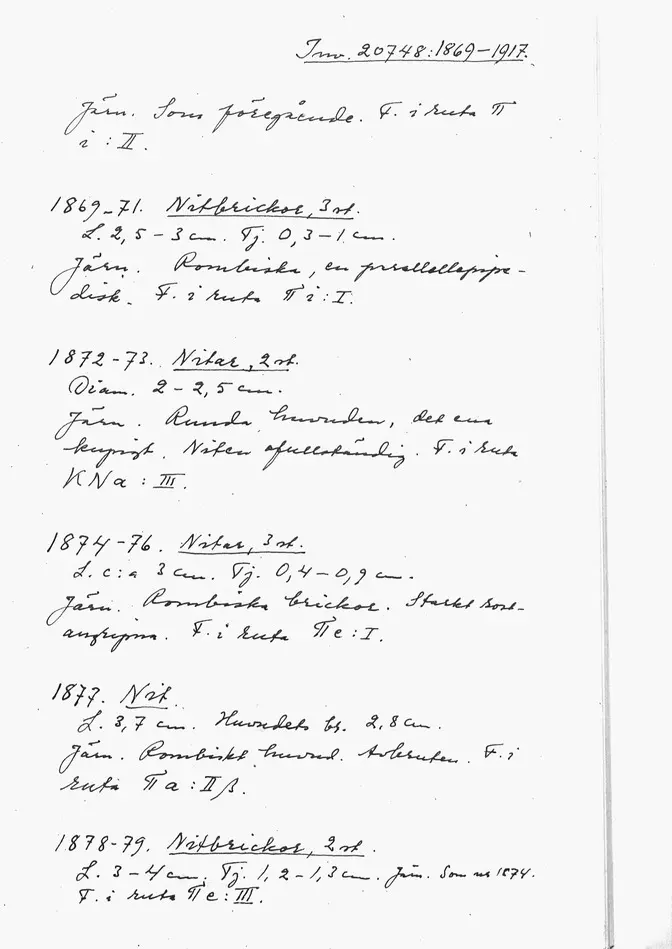 Inv. 20748:1869–1917.
Järn. Som föregående. F. i ruta Π
i : II.
1869–71. Nitbrickor, 3 st.
L. 2,5–3 cm. Tj. 0,3–1 cm.
Järn. Rombiska, en parallellepipe-
disk. F. i ruta Π i : I.
1872–73. Nitar, 2 st.
Diam. 2–2,5 cm.
Järn. Runda huvuden, det ena
kupigt. Niten ofullständig. F. i ruta
KNa : III.
1874–76. Nitar, 3 st.
L. c:a 3 cm. Tj. 0,4–0,9 cm.
Järn. Rombiska brickor. Starkt rost-
angripna. F. i ruta Π e : I.
1877. Nit.
L. 3,7 cm. Huvudets br. 2,8 cm.
Järn. Rombiskt huvud. Avbruten. F. i
ruta Π a : II β.
1878–79. Nitbrickor, 2 st.
L. 3–4 cm. Tj. 1,2–1,3 cm. Järn. Som nr 1874.
F. i ruta Π e : III.